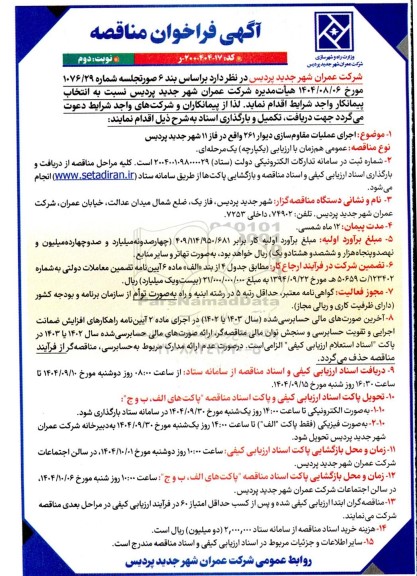 آگهی فراخوان مناقصه
وزارت راه و شهرسازی
شرکت عمران شهر جدید پردیس
کد: ۲۰۰-۴-۰۴-۱۷-ر
نوبت: دوم
شرکت عمران شهر جدید پردیس در نظر دارد براساس بند ۶ صورتجلسه شماره ۱۰۷۶/۲۹
مورخ ۱۴۰۴/۰۸/۰۶ هیأت‌مدیره شرکت عمران شهر جدید پردیس نسبت به انتخاب
پیمانکار واجد شرایط اقدام نماید. لذا از پیمانکاران و شرکت‌های واجد شرایط دعوت
می‌گردد جهت دریافت، تکمیل و بارگذاری اسناد به‌شرح ذیل اقدام نمایند:
۱- موضوع: اجرای عملیات مقاوم‌سازی دیوار ۲۶۱ واقع در فاز ۱۱ شهر جدید پردیس
نوع مناقصه: عمومی همزمان با ارزیابی (یکپارچه) یک‌مرحله‌ای.
۲- شماره ثبت در سامانه تدارکات الکترونیکی دولت (ستاد) ۲۰۰۴۰۰۱۰۹۸۰۰۰۰۲۹ است. کلیه مراحل مناقصه از دریافت و
بارگذاری اسناد ارزیابی کیفی و اسناد مناقصه و بازگشایی پاکت‌ها از طریق سامانه ستاد (www.setadiran.ir) انجام
می‌شود.
۳- نام و نشانی دستگاه مناقصه‌گزار: شهر جدید پردیس، فاز یک، ضلع شمال میدان عدالت، خیابان عمران، شرکت
عمران شهر جدید پردیس. تلفن: ۷۴۹۰۲، داخلی ۷۲۵۳.
۴- مدت پیمان: ۱۲ ماه شمسی.
۵- مبلغ برآورد اولیه: مبلغ برآورد اولیه کار برابر ۴۰۹/۱۱۴/۹۵۰/۶۸۱ (چهارصدونه‌میلیارد و صدوچهارده‌میلیون و
نهصدوپنجاه‌هزار و ششصدو هشتادو یک) ریال خواهد بود، به‌صورت تهاتر و سایر منابع.
۶- تضمین شرکت در فرآیند ارجاع کار: مطابق جدول ۴ از بند «الف» ماده ۶ آیین‌نامه تضمین معاملات دولتی به‌شماره
۱۲۳۴۰۲/ت۵۰۶۵۹ هـ مورخ ۱۳۹۴/۰۹/۲۲ به مبلغ ۲۱/۰۰۰/۰۰۰/۰۰۰ (بیست‌ویک میلیارد) ریال.
۷- مجوز فعالیت: گواهی‌نامه معتبر، حداقل رتبه ۵ در رشته ابنیه و راه به‌صورت توأم از سازمان برنامه و بودجه کشور
(دارای ظرفیت کاری و ریالی مجاز).
۸- آخرین صورت‌های مالی حسابرسی‌شده (سال ۱۴۰۳ یا ۱۴۰۲) در اجرای ماده ۲ آیین‌نامه راهکارهای افزایش ضمانت
اجرایی و تقویت حسابرسی و سنجش توان مالی مناقصه‌گر، ارائه صورت‌های مالی حسابرسی‌شده سال ۱۴۰۲ یا ۱۴۰۳ در
پاکت "اسناد استعلام ارزیابی کیفی" الزامی است. درصورت عدم ارائه مدارک مربوط به حسابرسی، مناقصه‌گر از فرآیند
مناقصه حذف می‌گردد.
۹- دریافت اسناد ارزیابی کیفی و اسناد مناقصه از سامانه ستاد: از ساعت ۰۸:۰۰ روز دوشنبه مورخ ۱۴۰۴/۰۹/۱۰ تا
ساعت ۱۶:۳۰ روز شنبه مورخ ۱۴۰۴/۰۹/۱۵.
۱۰- تحویل پاکت اسناد ارزیابی کیفی و پاکت اسناد مناقصه "پاکت‌های الف، ب و ج":
۱-۱۰- به‌صورت الکترونیکی تا ساعت ۱۴:۰۰ روز یک‌شنبه مورخ ۱۴۰۴/۰۹/۳۰ در سامانه ستاد بارگذاری شود.
۲-۱۰- به‌صورت فیزیکی (فقط پاکت "الف") تا ساعت ۱۴:۰۰ روز یک‌شنبه مورخ ۱۴۰۴/۰۹/۳۰ به‌دبیرخانه شرکت عمران
شهر جدید پردیس تحویل شود.
۱۱- زمان و محل بازگشایی پاکت اسناد ارزیابی کیفی: ساعت ۱۰:۰۰ روز دوشنبه مورخ ۱۴۰۴/۱۰/۰۱، در سالن اجتماعات
شرکت عمران شهر جدید پردیس.
۱۲- زمان و محل بازگشایی پاکت اسناد مناقصه "پاکت‌های الف، ب و ج": ساعت ۱۰:۰۰ روز شنبه مورخ ۱۴۰۴/۱۰/۰۶،
در سالن اجتماعات شرکت عمران شهر جدید پردیس.
۱۳- مناقصه‌گران ابتدا ارزیابی کیفی شده و پس از کسب حداقل امتیاز ۶۰ در فرآیند ارزیابی کیفی در مراحل بعدی مناقصه
شرکت می‌نمایند.
۱۴- هزینه خرید اسناد مناقصه از سامانه ستاد ۲,۰۰۰,۰۰۰ (دو میلیون) ریال است.
۱۵- سایر اطلاعات و جزئیات مربوط در اسناد ارزیابی کیفی و اسناد مناقصه مندرج است.
روابط عمومی شرکت عمران شهر جدید پردیس